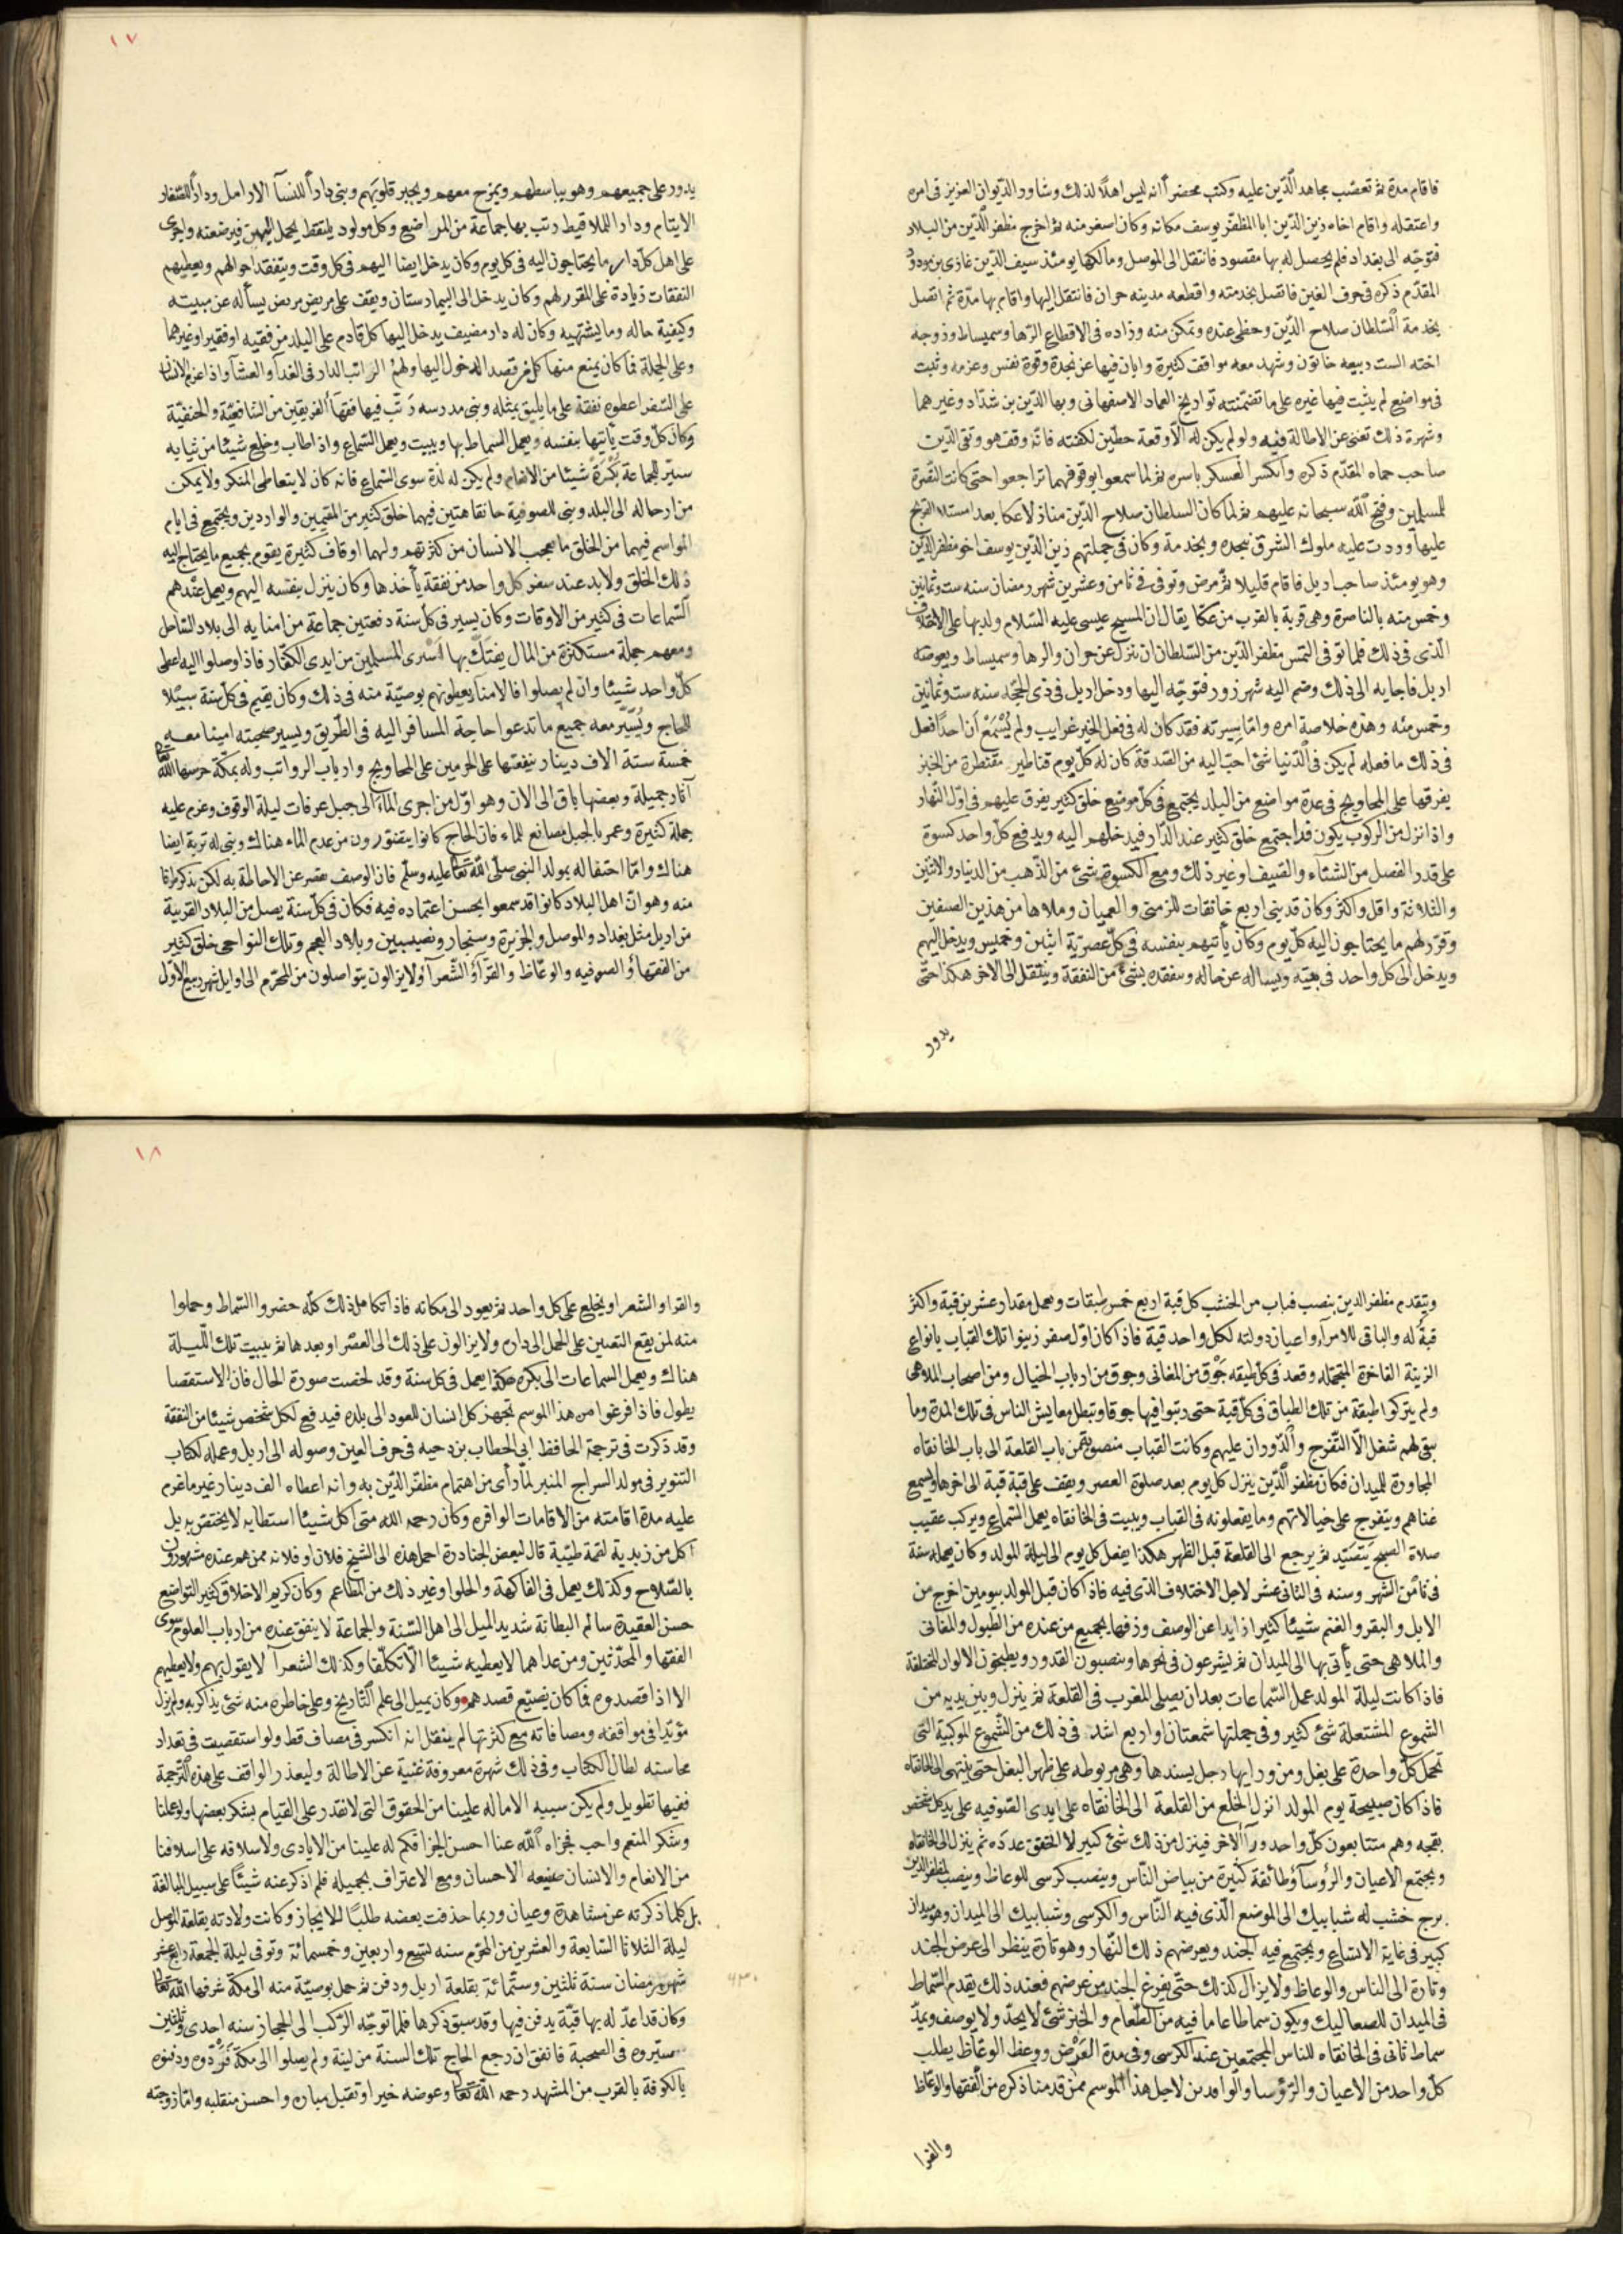 فاقام مدة ثم تعصّب مجاهد الدّين عليه وكتب محضرا انه ليس اهلا لذلك وشاور الدّيوان العزيز فى امره
واعتقله واقام اخاه زين الدّين ابا المظفّر يوسف مكانه وكان اسغر منه ثم اخرج مظفر الدّين من البلاد
فتوجّه الى بغداد فلم يحصل له بها مقصود فانتقل الى الموصل ومالكها يومئذ سيف الدّين غازى بن مودود
المقدّم ذكره فى حرف الغين فاتصل بخدمته واقطعه مدينه حران فانتقل اليها واقام بها مدّة ثم اتصل
بخدمة السّلطان صلاح الدّين وحظى عنده وتمكن منه وزاده فى الاقطاع الرّها وسميساط وزوجه
اخته الست ربيعه خاتون وشهد معه مواقف كثيرة وابان فيها عن نجدة وقوة نفس وعزمه وثبت
فى مواضع لم يثبت فيها غيره على ما تضمّنته تواريخ العماد الاصفهانى وبها الدّين بن شدّاد وغيرهما
وشهرة ذلك تغنى عن الاطالة فيه ولو لم يكن له الّا وقعة حطّين لكفته فانّه وقف هو وتقى الدّين
صاحب حماه المقدّم ذكره وانكسر العسكر باسره ثم لما سمعوا بوقوفهما تراجعوا حتى كانت النّصرة
للمسلمين وفتح اللّه سبحانه عليهم ثم لما كان السلطان صلاح الدّين منازلا عكا بعد استيلا الفرنج
عليها ووردت عليه ملوك الشرق تنجده وبخدمة وكان فى جملتهم زين الدّين يوسف اخو مظفر الدّين
وهو يومئذ صاحب اربل فاقام قليلا ثم مرض وتوفى فى ثامن وعشرين شهر رمضان سنه ست وثمانين
وخمس منه بالناصرة وهى قرية بالقرب من عكا يقال ان المسيح عيسى عليه السّلام ولد بها على الاختلاف
الّذى فى ذلك فلما توفى التمس مظفر الدّين من السّلطان ان ينزل عن حران والرها وسميساط ويعوضه
اربل فاجابه الى ذلك وضم اليه شهرزور فتوجّه اليها ودخل اربل فى ذى الحجّة سنه ست وثمانين
وخمس مئه وهذه خلاصة امره وامّا سيرته فقد كان له فى فعل الخير غرايب ولم يُسْمَعْ أن احدًا فعل
فى ذلك ما فعله لم يكن فى الدّنيا شئ احبّ اليه من الصّدقة كان له كلّ يوم قناطير مقنطرة من الخبز
يفرقها على المحاويج فى عدة مواضع من البلد يجتمع فى كلّ موضع خلق كثير يفرق عليهم فى اوّل النّهار
واذا نزل من الركوب يكون قد اجتمع خلق كثير عند الدّار فيدخلهم اليه ويدفع كلّ واحد كسوة
على قدر الفصل من الشتاء والصّيف او غير ذلك ومع الكسوة شئ من الذّهب من الدينار والاثنين
والثلاثة واقل واكثر وكان قد بنى اربع خانقات للزمنى والعميان وملاها من هذين الصنفين
وقرّر لهم ما يحتاجون اليه كلّ يوم وكان يأتيهم بنفسه فى كلّ عصريّة اثنين وخميس ويدخل اليهم
ويدخل الى كلّ واحد فى بيته ويساله عن حاله ويتفقده بشئ من النفقة وينتقل الى الاخر هكذا حتّى
يدور
١٧
يدور على جميعهم وهو يباسطهم ويمزح معهم ويجبر قلوبهم وبنى دارًا للنسآ الارامل ودارا للصّغار
الايتام ودارا للملاقيط رتب بها جماعة من المراضع وكل مولود يلتقط يحمل اليهن فيرضعنه واجرى
على اهل كلّ دار ما يحتاجون اليه فى كلّ يوم وكان يدخل ايضا اليهم فى كلّ وقت ويتفقد احوالهم ويعطيهم
النفقات زيادة على المقرر لهم وكان يدخل الى البيمارستان ويقف على مريض مريض يسأله عن مبيته
وكيفية حاله وما يشتهيه وكان له دار مضيف يدخل اليها كلّ قادم على البلد من فقيه او فقير او غيرهما
وعلى الجملة فما كان يمنع منها كل من قصد الدخول اليها ولهم الراتب الدار فى الغدآ والعشآ واذا عزم الانسان
على السّفر اعطوه نفقة على ما يليق بمثله وبنى مدرسه رتّب فيها فقهآ الفريقين من الشافعيّة والحنفيّة
وكان كلّ وقت يأتيها بنفسه ويعمل السماط بها ويبيت ويعمل السّماع واذا طاب وخلع شيئا من ثيابه
سيّر للجماعة بُكْرَةً شيئا من الانعام ولم يكن له لذة سوى السّماع فانه كان لا يتعاطى المنكر ولا يمكن
من ادخاله الى البلد وبنى للصوفية خانقاهتين فيهما خلق كثير من المقيمين والواردين ويجتمع فى ايام
المواسم فيهما من الخلق ما يعجب الانسان من كثرتهم ولهما اوقاف كثيرة يقوم بجميع ما يحتاج اليه
ذلك الخلق ولا بد عند سفر كل واحد من نفقة يأخذها وكان ينزل بنفسه اليهم ويعمل عندهم
السّماعات فى كثير من الاوقات وكان يسير فى كلّ سنة دفعتين جماعة من امنايه الى بلاد السّاحل
ومعهم جملة مستكثرة من المال يفتكّ بها اَسْرى المسلمين من ايدى الكفّار فاذا وصلوا اليه اعطى
كلّ واحد شيئا وان لم يصلوا فالامنآ يعطونهم بوصيّة منه فى ذلك وكان يقيم فى كلّ سنة سبيلا
للحاج ويُسَيِّر معه جميع ما تدعوا حاجة المسافر اليه فى الطّريق ويسير صحبته امينا معه
خمسة ستة الاف دينار ينفقتها على الحرمين على المحاويج وارباب الرواتب وله بمكّة حرسها اللّه تعالى
آثار جميلة وبعضها باق الى الان وهو اوّل من اجرى المآء الى جبل عرفات ليلة الوقوف وغرم عليه
جملة كثيرة وعمر بالجبل مصانع للماء فانّ الحاج كانوا يتضررون من عدم الماء هناك وبنى له تربة ايضا
هناك وامّا احتفاله بمولد النبىّ صلّى اللّه تعالى عليه وسلّم فان الوصف يقصر عن الاحاطة به لكن نذكر طرفا
منه وهو انّ اهل البلاد كانوا قد سمعوا بحسن اعتقاده فيه فكان فى كلّ سنة يصل من البلاد القريبة
من اربل مثل بغداد والموصل والجزيرة وسنجار ونصيبين وبلاد العجم وتلك النواحى خلق كثير
من الفقهآ والصوفيه والوعّاظ والقرّآ والشّعرآ ولا يزالون يتواصلون من المحرّم الى اوايل شهر ربيع الاوّل
ويتقدم مظفر الدين بنصب قباب من الخشب كل قبة اربع خمس طبقات ويعمل مقدار عشرين قبة واكثر
قبةً له والباقى للامرآء واعيان دولته لكل واحد قبة فاذا كان اوّل صفر زينوا تلك القباب بانواع
الزينة الفاخرة المتجملة وقعد فى كلّ طبقه جَوْق من المغانى وجوق من ارباب الخيال ومن اصحاب الملاهى
ولم يتركوا طبقة من تلك الطباق فى كلّ قبة حتى رتبوا فيها جوقا وتبطل معايش الناس فى تلك المدة وما
يبقى لهم شغل الّا التّفرّج والدّوران عليهم وكانت القباب منصوبة من باب القلعة الى باب الخانقاه
المجاورة للميدان فكان مظفر الدّين ينزل كل يوم بعد صلوة العصر ويقف على قبة قبة الى اخرها ويسمع
غناهم ويتفرج على خيالاتهم وما يفعلونه فى القباب ويبيت فى الخانقاه يعمل السّماع ويركب عقيب
صلاة الصبح يتصيّد ثم يرجع الى القلعة قبل الظهر هكذا يفعل كل يوم الى ليلة المولد وكان يعمله سنة
فى ثامن الشهر وسنه فى الثانى عشر لاجل الاختلاف الذى فيه فاذا كان قبل المولد بيومين اخرج من
الابل والبقر والغنم شيئا كثيرا زايدا عن الوصف وزفها بجميع من عنده من الطبول والمغانى
والملاهى حتى يأتى بها الى الميدان ثم يشرعون فى نحرها وينصبون القدور ويطبخون الالوان المختلفة
فاذا كانت ليلة المولد عمل السّماعات بعد ان يصلى المغرب فى القلعة ثم ينزل وبين يديه من
الشموع المشتعلة شئ كثير وفى جملتها شمعتان او اربع اشد فى ذلك من الشّموع الموكبية التى
تحمل كلّ واحدة على بغل ومن ورايها رجل يسندها وهى مربوطه على ظهر البغل حتى ينتهى الى الخانقاه
فاذا كان صبيحة يوم المولد انزل الخلع من القلعة الى الخانقاه على ايدى الصّوفيه على يد كل شخص
بقجه وهم متتابعون كلّ واحد ورآ الاخر فينزل من ذلك شئ كبير لا اتحقق عدده ثم ينزل الى الخانقاه
ويجتمع الاعيان والرؤسآ وطائفة كبيرة من بياض النّاس وينصب كرسى للوعاظ وينصب لمظفر الدين
برج خشب له شبابيك الى الموضع الّذى فيه النّاس والكرسى وشبابيك الى الميدان وهو ميدان
كبير فى غاية الاتساع ويجتمع فيه الجند ويعرضهم ذلك النّهار وهو تارة ينظر الى عرض الجند
وتارة الى الناس والوعاظ ولا يزال كذلك حتّى يفرغ الجند من عرضهم فعند ذلك يقدم السّماط
فى الميدان للصعاليك ويكون سماطا عاما فيه من الطّعام والخبز شئ لا يحدّ ولا يوصف ويمدّ
سماط ثانى فى الخانقاه للناس المجتمعين عند الكرسى وفى مدة العَرْض ووعظ الوعّاظ يطلب
كلّ واحد من الاعيان والرّؤسا والوافدين لاجل هذا الموسم ممن قدمنا ذكره من الفقها والوعّاظ
والقرا
١٨
والقرا والشعرا ويخلع على كل واحد ثم يعود الى مكانه فاذا تكامل ذلك كلّه حضروا السّماط وحملوا
منه لمن يقع التعيين على الحمل الى داره ولا يزالون على ذلك الى العصر او بعدها ثم يبيت تلك اللّيلة
هناك ويعمل السماعات الى بكره هكذا يعمل فى كل سنة وقد لخصت صورة الحال فان الاستقصا
يطول فاذا فرغوا من هذا الموسم تجهز كل انسان للعود الى بلده فيدفع لكل شخص شيئا من النفقة
وقد ذكرت فى ترجمة الحافظ ابى الخطاب بن دحيه فى حرف العين وصوله الى اربل وعمله لكتاب
التنوير فى مولد السراج المنير لمّا رأى من اهتمام مظفر الدّين به وانه اعطاه الف دينار غير ما غرم
عليه مدة اقامته من الاقامات الوافره وكان رحمه الله متى اكل شيئا استطابه لا يختص به بل
اكل من زبدية لقمة طيّبة قال لبعض الجنادرة احمل هذه الى الشيخ فلان او فلانه ممن هم عنده مشهورون
بالصّلاح وكذلك يعمل فى الفاكهة والحلوا وغير ذلك من المطاعم وكان كريم الاخلاق كثير التواضع
حسن العقيدة سالم البطانة شديد الميل الى اهل السّنة والجماعة لا ينفق عنده من ارباب العلوم سوى
الفقها والمحدّثين ومن عداهما لا يعطيه شيئا الّا تكلّفا وكذلك الشعرآ لا يقول بهم ولا يعطيهم
الا اذا قصدوه فما كان يضيّع قصدهم وكان يميل الى علم التّاريخ وعلى خاطره منه شئ يذاكر به ولم يزل
مؤيّدا فى مواقفه ومصافاته مع كثرتها لم ينقل انه انكسر فى مصاف قط ولو استقصيت فى تعداد
محاسنه لطال الكتاب وفى ذلك شهرة معروفة غنية عن الاطالة وليعذر الواقف على هذه التّرجمة
ففيها تطويل ولم يكن سببه الا ماله علينا من الحقوق التى لا نقدر على القيام بشكر بعضها ولو عملنا
وشكر المنعم واجب فجزاه اللّه عنا احسن الجزا فكم له علينا من الايادى ولاسلافه على اسلافنا
من الانعام والانسان صنيعه الاحسان ومع الاعتراف بجميله فلم اذكر عنه شيئًا على سبيل المبالغة
بل كلّما ذكرته عن مشاهدة وعيان وربما حذفت بعضه طلبًا للايجاز وكانت ولادته بقلعة الموصل
ليلة الثلاثا السّابعة والعشرين من المحرّم سنه تسع واربعين وخمسمائة وتوفى ليلة الجمعة رابع عشر
شهر رمضان سنة ثلثين وستّمائة بقلعة اربل ودفن ثم حمل بوصيّة منه الى مكّة شرفها اللّه تعالى
وكان قد اعدّ له بها قبّة يدفن فيها وقد سبق ذكرها فلما توجّه الرّكب الى الحجاز سنه احدى وثلثين
سيّروه فى الصحبة فاتفق ان رجع الحاج تلك السنة من لينة ولم يصلوا الى مكّة فردّوه ودفنوه
بالكوفة بالقرب من المشهد رحمه اللّه تعالى وعوضه خيرا وتقبل مبارّه واحسن منقلبه وامّا زوجته
٦٣٠